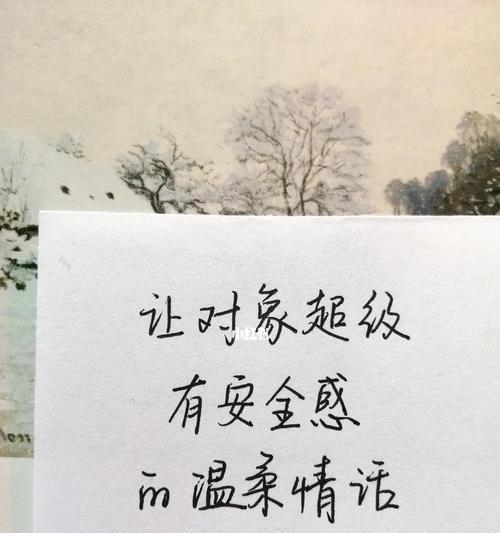 让对象超级
小红书
有安全感
的温柔情话